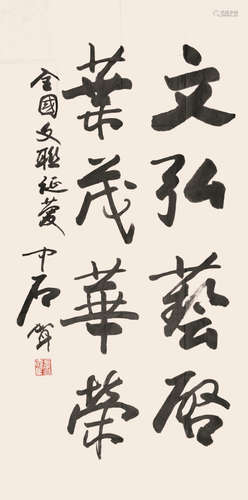 文弘藝啓
葉茂華榮
全國文聯延慶
中石